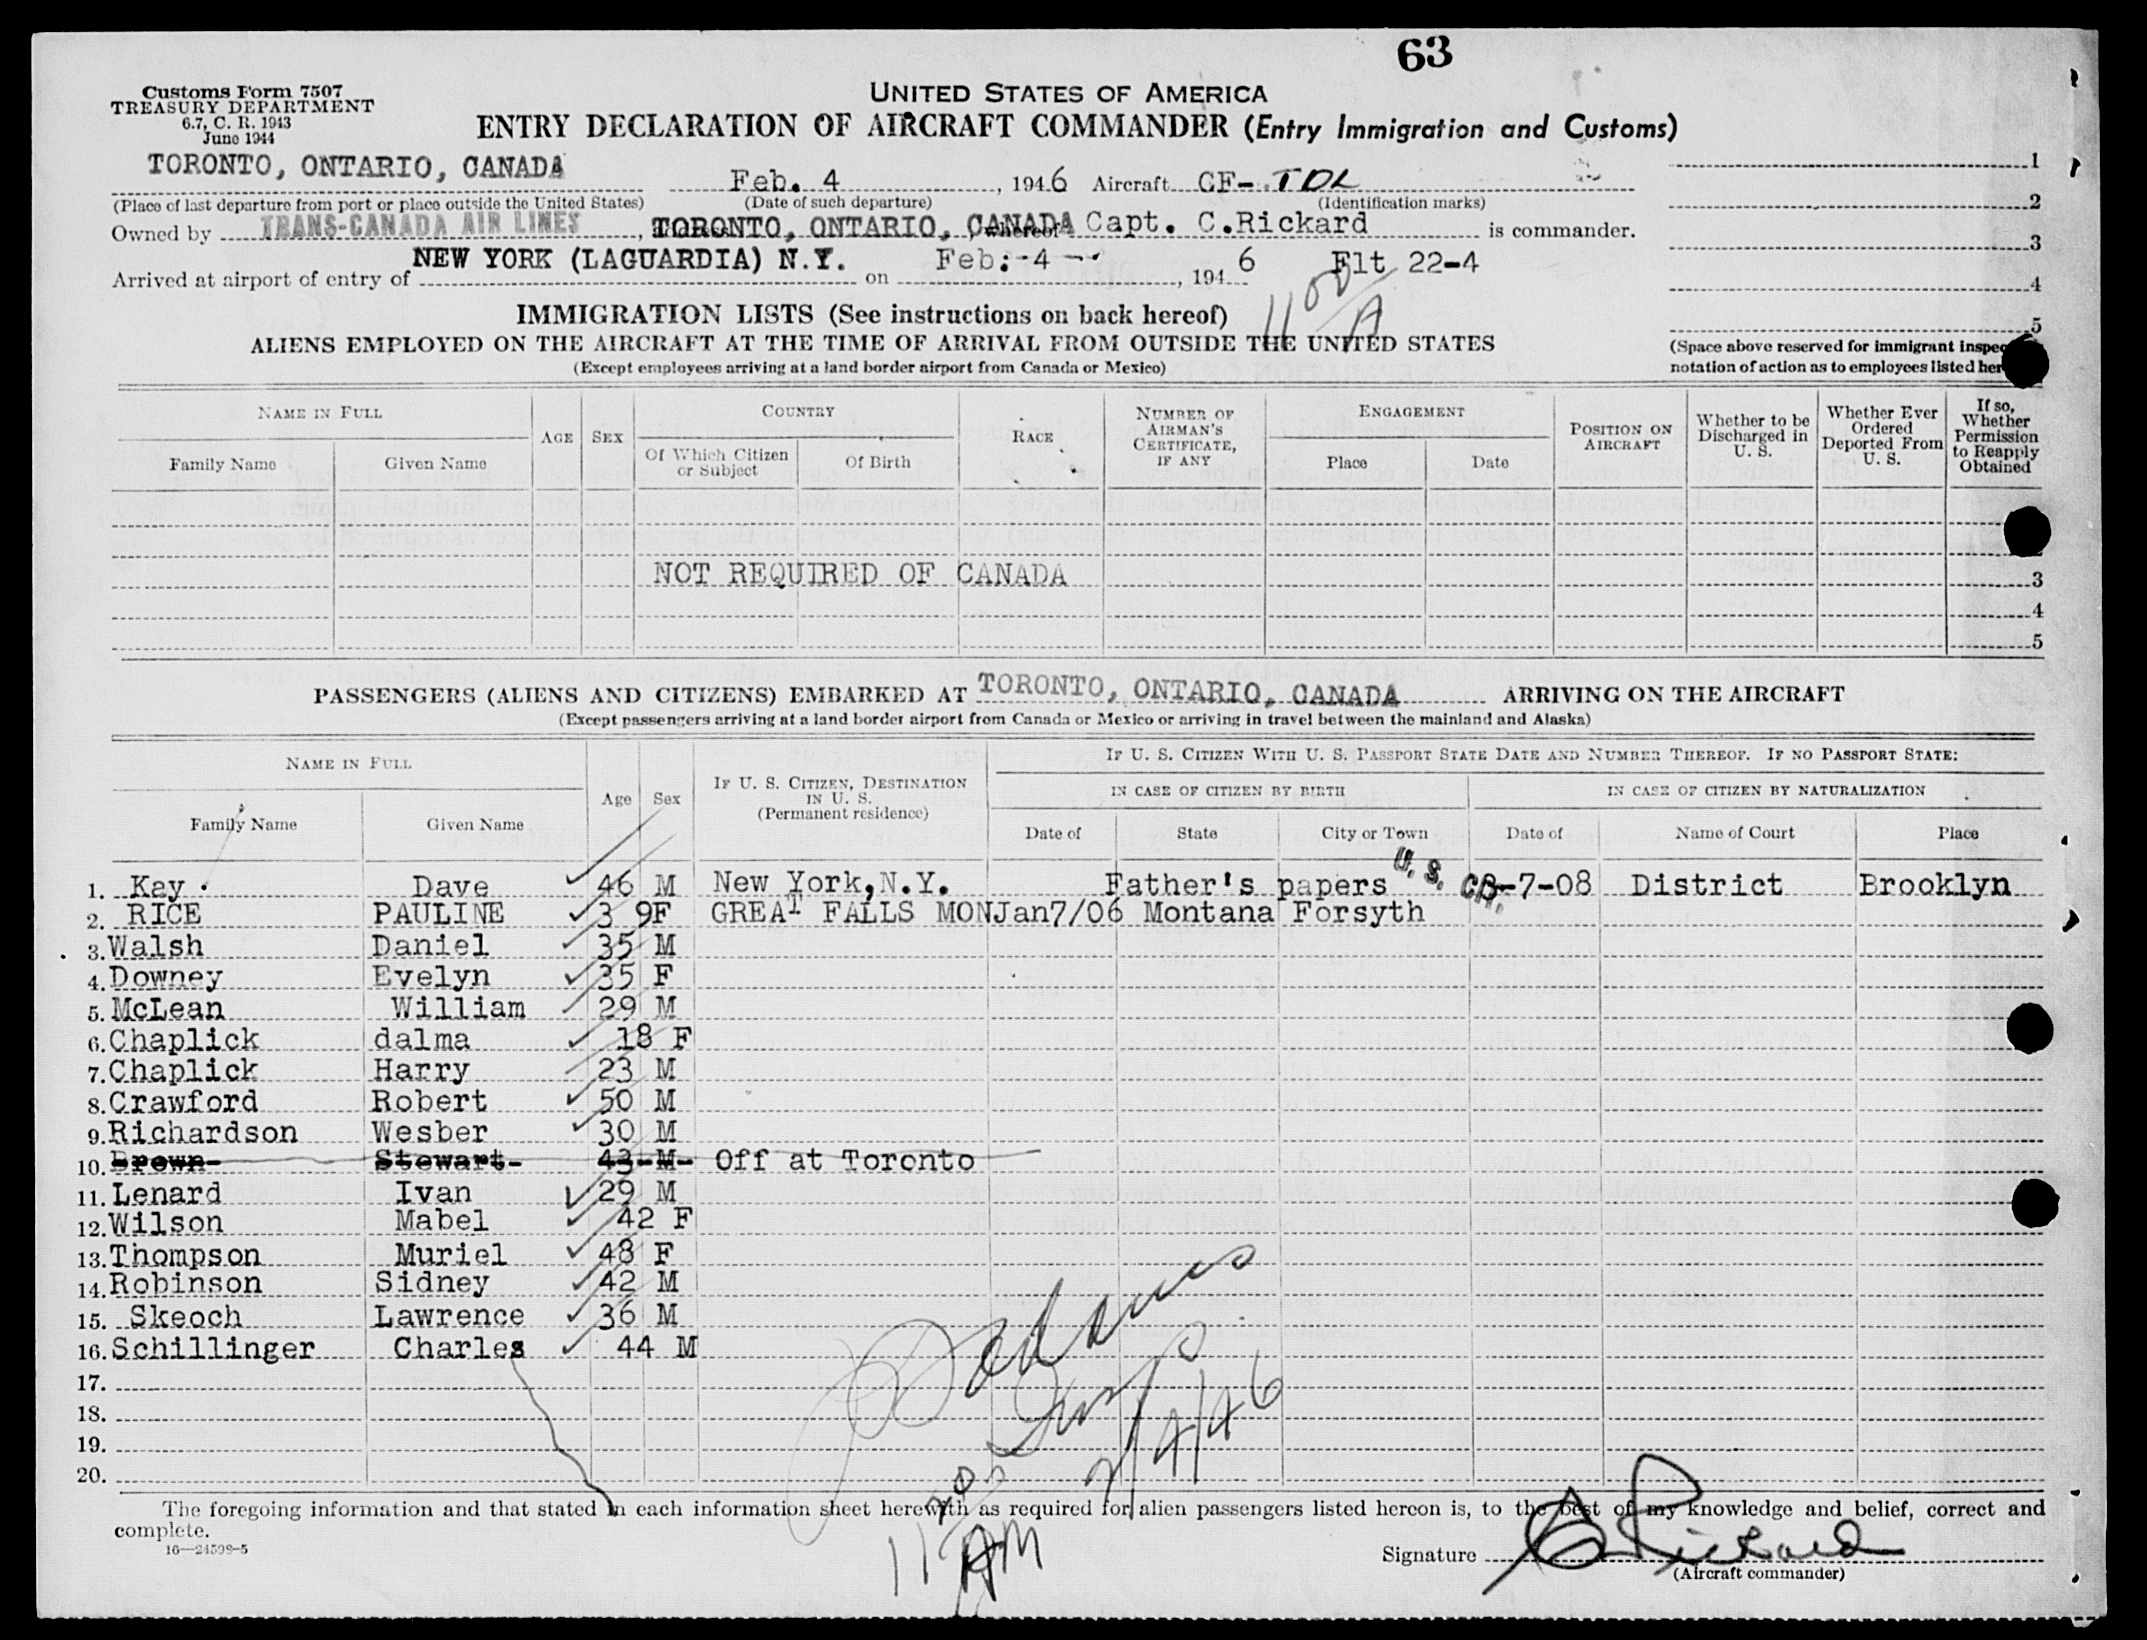 63
Customs Form 7507
TREASURY DEPARTMENT
6.7, C. R. 1943
June 1944
UNITED STATES OF AMERICA
ENTRY DECLARATION OF AIRCRAFT COMMANDER (Entry Immigration and Customs)
TORONTO, ONTARIO, CANADA Feb. 4, 1946 Aircraft CF- TDL
(Place of last departure from port or place outside the United States) (Date of such departure) (Identification marks)
Owned by TRANS-CANADA AIR LINES, TORONTO, ONTARIO, CANADA, whereof Capt. C.Rickard is commander.
Arrived at airport of entry of NEW YORK (LAGUARDIA) N.Y. on Feb. 4, 1946 Flt 22-4
1100/A
1
2
3
4
5
(Space above reserved for immigrant
notation of action as to employees listed
IMMIGRATION LISTS (See instructions on back hereof)
ALIENS EMPLOYED ON THE AIRCRAFT AT THE TIME OF ARRIVAL FROM OUTSIDE THE UNITED STATES
(Except employees arriving at a land border airport from Canada or Mexico)
NAME IN FULL
Family Name Given Name
AGE SEX
COUNTRY
Of Which Citizen or Subject Of Birth
RACE
NUMBER OF AIRMAN'S CERTIFICATE, IF ANY
ENGAGEMENT
Place Date
POSITION ON AIRCRAFT
Whether to be Discharged in U. S.
Whether Ever Ordered Deported From U. S.
If so, Whether Permission to Reapply Obtained
NOT REQUIRED OF CANADA 3
4
5
PASSENGERS (ALIENS AND CITIZENS) EMBARKED AT TORONTO, ONTARIO, CANADA ARRIVING ON THE AIRCRAFT
(Except passengers arriving at a land border airport from Canada or Mexico or arriving in travel between the mainland and Alaska)
NAME IN FULL
Family Name Given Name
Age Sex
IF U. S. CITIZEN, DESTINATION IN U. S.
(Permanent residence)
IF U. S. CITIZEN WITH U. S. PASSPORT STATE DATE AND NUMBER THEREOF. IF NO PASSPORT STATE:
IN CASE OF CITIZEN BY BIRTH IN CASE OF CITIZEN BY NATURALIZATION
Date of State City or Town Date of Name of Court Place
1. Kay Dave 46 M New York,N.Y. Father's papers U. S. -7-08 District Brooklyn
2. RICE PAULINE 3 9F GREAT FALLS MON Jan7/06 Montana Forsyth
3. Walsh Daniel 35 M
4. Downey Evelyn 35 F
5. McLean William 29 M
6. Chaplick dalma 18 F
7. Chaplick Harry 23 M
8. Crawford Robert 50 M
9. Richardson Wesber 30 M
10. Brown Stewart 43 M Off at Toronto
11. Lenard Ivan 29 M
12. Wilson Mabel 42 F
13. Thompson Muriel 48 F
14. Robinson Sidney 42 M
15. Skeoch Lawrence 36 M
16. Schillinger Charles 44 M
17.
18.
19.
20.
2/4/46
1120 AM
The foregoing information and that stated in each information sheet herewith as required for alien passengers listed hereon is, to the best of my knowledge and belief, correct and
complete.
16—24598-5
Signature C Rickard
(Aircraft commander)